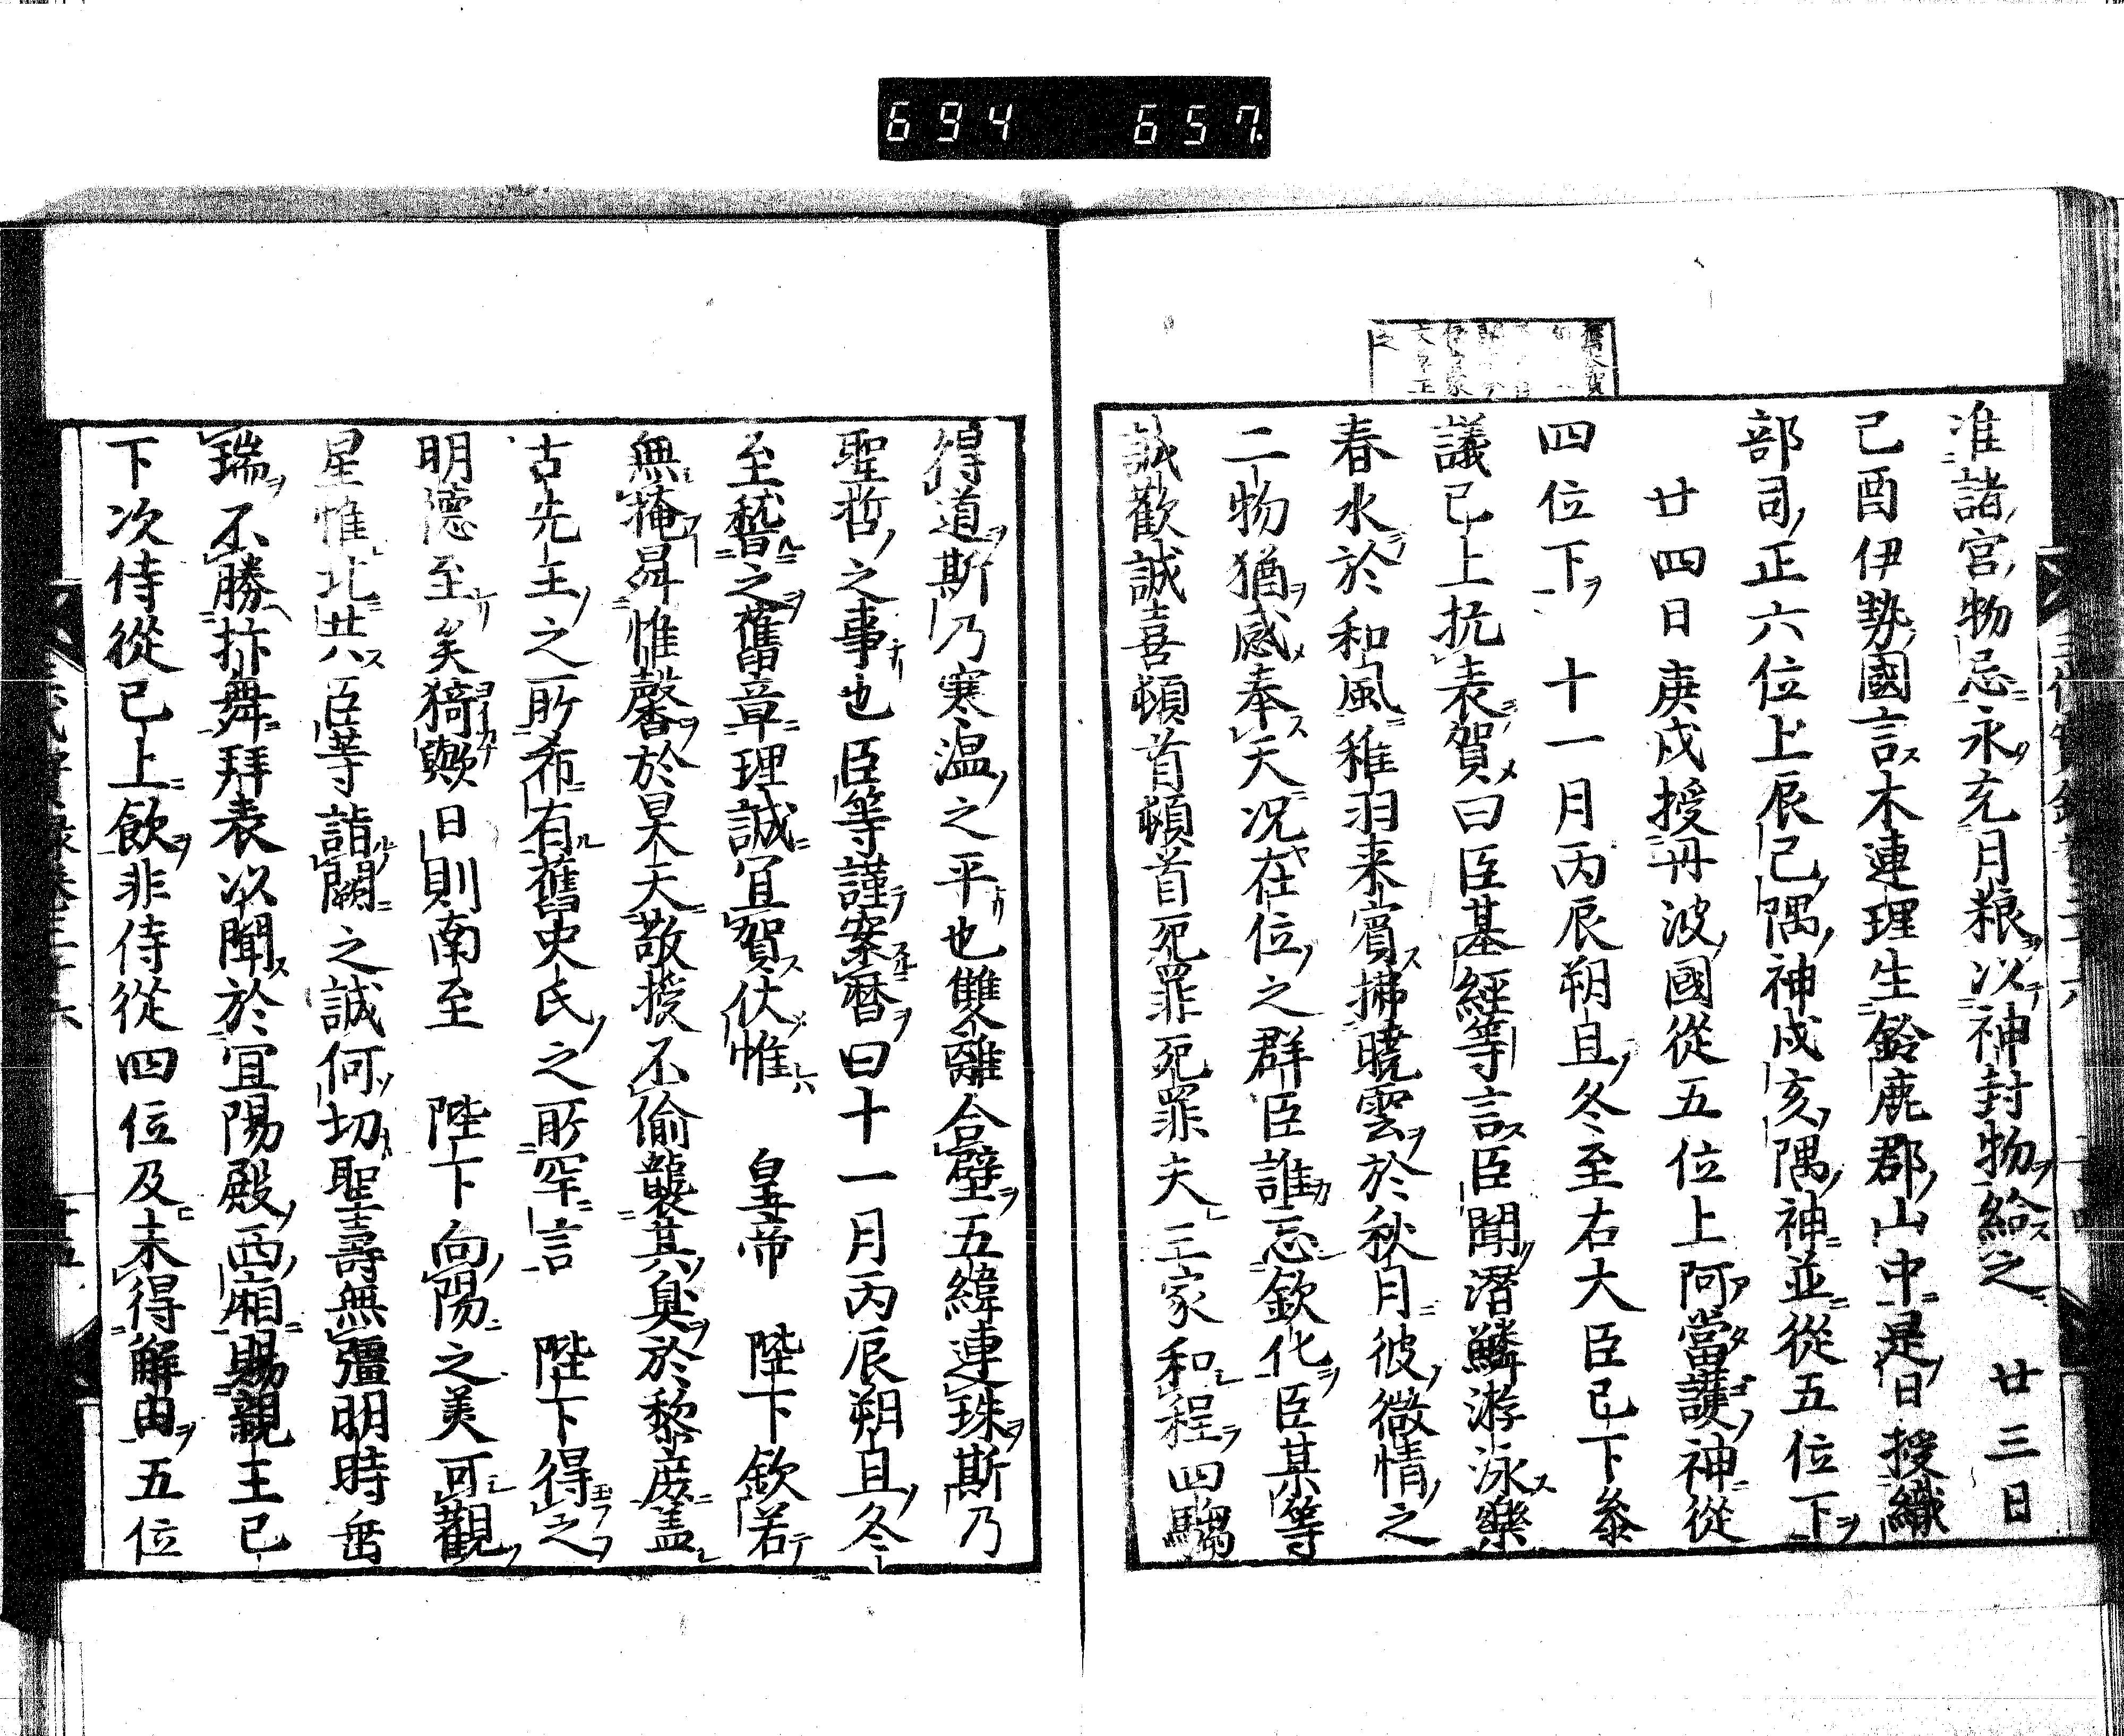 694 657
准諸宮物忌永充月粮以神封物給之 廿三日
己酉伊勢國言木連理生鈴鹿郡山中是日授織
部司正六位上辰巳隅神戌亥隅神並從五位下
廿四日庚戌授丹波國從五位上阿當護神從
四位下 十一月丙辰朔旦冬至右大臣已下參
議已上抗表賀曰臣基經等言臣聞潛鱗游泳樂
春水於和風稚羽来賓拂曉雲於秋月彼微情之
二物猶感奉天况在位之群臣誰忘欽化臣某等
誠歡誠喜頓首頓首死罪死罪夫三家和程四驎
得道斯乃寒温之平也雙離合璧五緯連珠斯乃
聖哲之事也臣等謹案暦曰十一月丙辰朔旦冬
至稽之舊章理誠宜賀伏惟 皇帝 陛下欽若
無掩昇惟馨於昊天敬授不偷襲其奥於黎庶盖
古先王之所希有舊史氏之所罕言 陛下得之
明德至矣猗歟日則南至 陛下向陽之美可觀
星惟北共臣等詣闕之誠何切聖壽無彊明時岳
瑞不勝抃舞拜表以聞於宜陽殿西廂賜親王已
下次侍從已上飲非侍從四位及未得解由五位